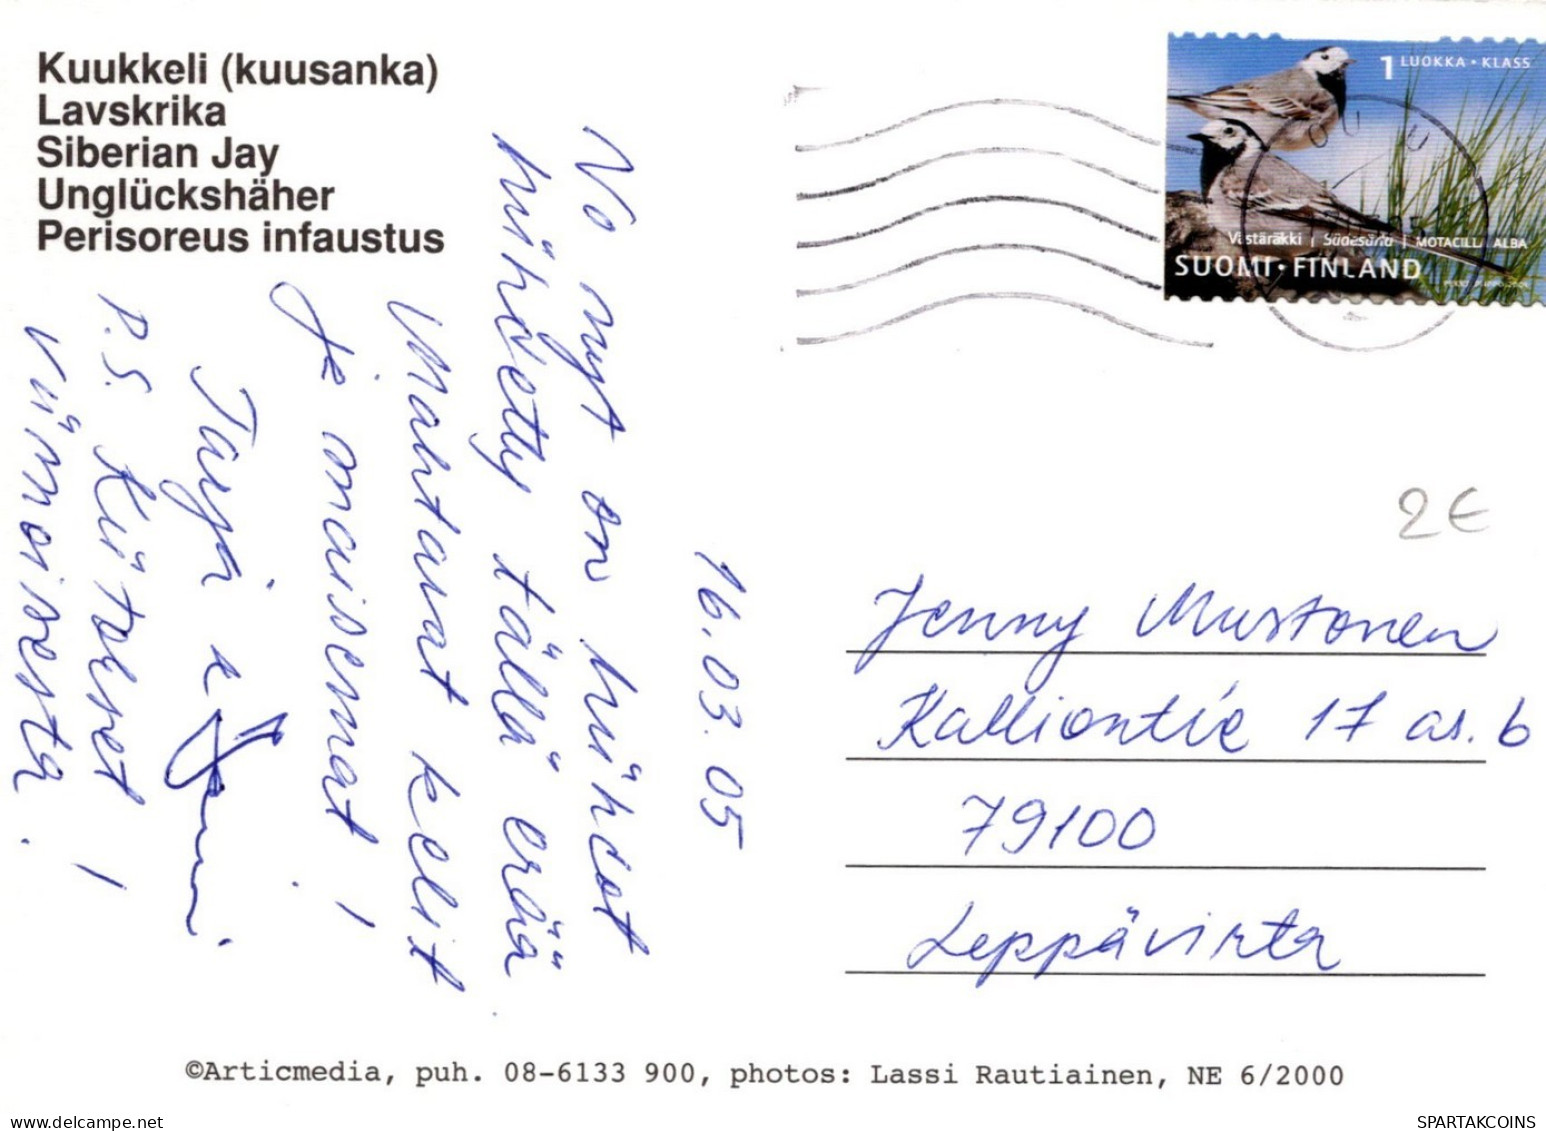 Kuukkeli (kuusanka)
Lavskrika
Siberian Jay
Unglückshäher
Perisoreus infaustus
16.03.05
No nyt on hiihdot
hiihdetty tällä erää
Mahtavat kelit
Ja maisemat!
Tarja &
P.S. Kiitokset!
viimoisesta.
1 LUOKKA · KLASS
Västäräkki | Sädesärla | MOTACILLA ALBA
SUOMI · FINLAND
2€
Jenny Mustonen
Kalliontie 17 as. 6
79100
Leppävirta
©Articmedia, puh. 08-6133 900, photos: Lassi Rautiainen, NE 6/2000
SPARTAKCOINS